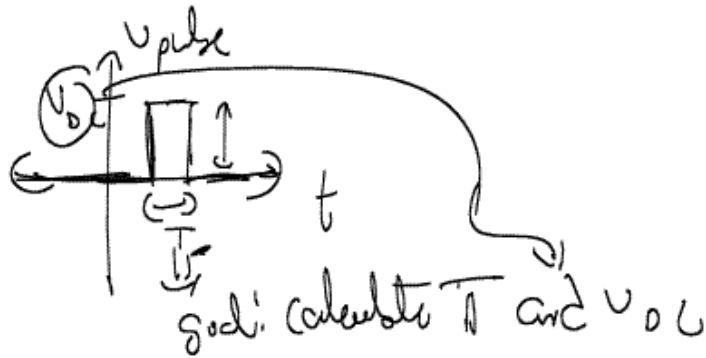 v pulse
V DC
t
T
goal: calculate T and v DC